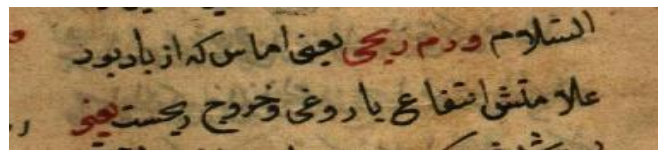 السّلام ورم ریحی یعنی اماس که از باد بود
علامتش انتفاع یا روغی و خروج ریحست یعنی